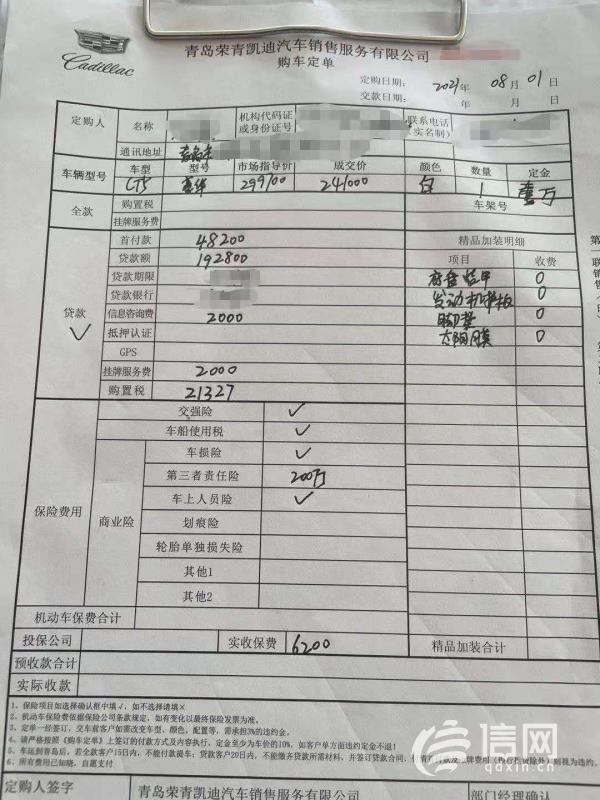 Cadillac
青岛荣青凯迪汽车销售服务有限公司
购车定单
定购日期： 2021年 08月 01日
交款日期： 年 月 日
定购人 名称 机构代码证或身份证号 联系电话（实名制）
通讯地址 青岛市
车辆型号 车型 型号 市场指导价 成交价 颜色 数量 定金
CT5 豪华 299700 241000 白 1 壹万
全款 购置税 车架号
挂牌服务费
贷款 √
首付款 48200 精品加装明细
贷款额 192800 项目 收费
贷款期限 底盘装甲 0
贷款银行 发动机护板 0
信息咨询费 2000 脚垫 0
抵押认证 太阳膜 0
GPS
挂牌服务费 2000
购置税 21327
保险费用
交强险 √
车船使用税 √
商业险
车损险 √
第三者责任险 200万
车上人员险 √
划痕险
轮胎单独损失险
其他1
其他2
机动车保费合计
投保公司 实收保费 6200 精品加装合计
预收款合计
实际收款
1、保险项目如选择确认框中填√，如不选择请填×
2、机动车保险费依据保险公司条款规定，如有变化以最终保险发票为准。
3、定单一经签订，交车前客户如需改变车型、颜色、配置等，需承担3%的违约金。
4、请严格按照《购车定单》上签订的付款方式及内容执行，定金至少为车价的10%，如客户单方面违约定金不退！
5、车运到青岛后，若全款客户15日内，不能付款提车；贷款客户20日内，不能缴齐贷款所需材料，并签订贷款合同，付清首付款及
6、所有费用已知晓，自愿支付
定购人签字 青岛荣青凯迪汽车销售服务有限公司 部门经理确认
信网
qdxin.cn